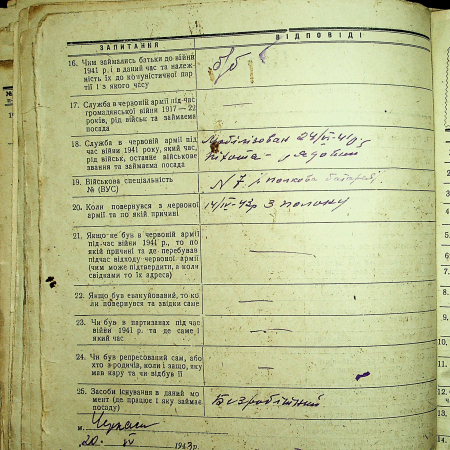 ЗАПИТАННЯ
ВІДПОВІДІ
16. Чим займались батьки до війни
1941 р. і в даний час та належ-
ність їх до комуністичної пар-
тії і з якого часу
б/б
17. Служба в червоній армії під час
громадянської війни 1917—22
років, рід військ та займаєма
посада
—
18. Служба в червоній армії під
час війни 1941 року, який час,
рід військ, останнє військове
звання та займаєма посада
Мобілізован 24/VI-41р
піхота - рядовий
19. Військова спеціальність
№ (ВУС)
N 7 і полкова батарея.
20. Коли повернувся з червоної
армії та по якій причині
14/IV-43р з полону
21. Якщо не був в червоній армії
під час війни 1941 р., то по
якій причині та де перебував
підчас відходу червоної армії
(чим може підтвердити, а коли
свідками то їх адреса)
—
22. Якщо був евакуйований, то ко-
ли повернувся та звідки саме
—
23. Чи був в партизанах під час
війни 1941 р. та де саме і
який час
—
24. Чи був репресований сам, або
хто з родичів, коли і защо, яку
мав кару та чи відбув її
—
25. Засоби існування в даний мо-
мент (де працює і яку займає
посаду)
Безробітний
м. Черкаси
„20„ IV 1943 р.